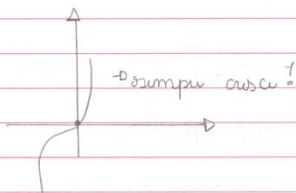 → sempre cresce!